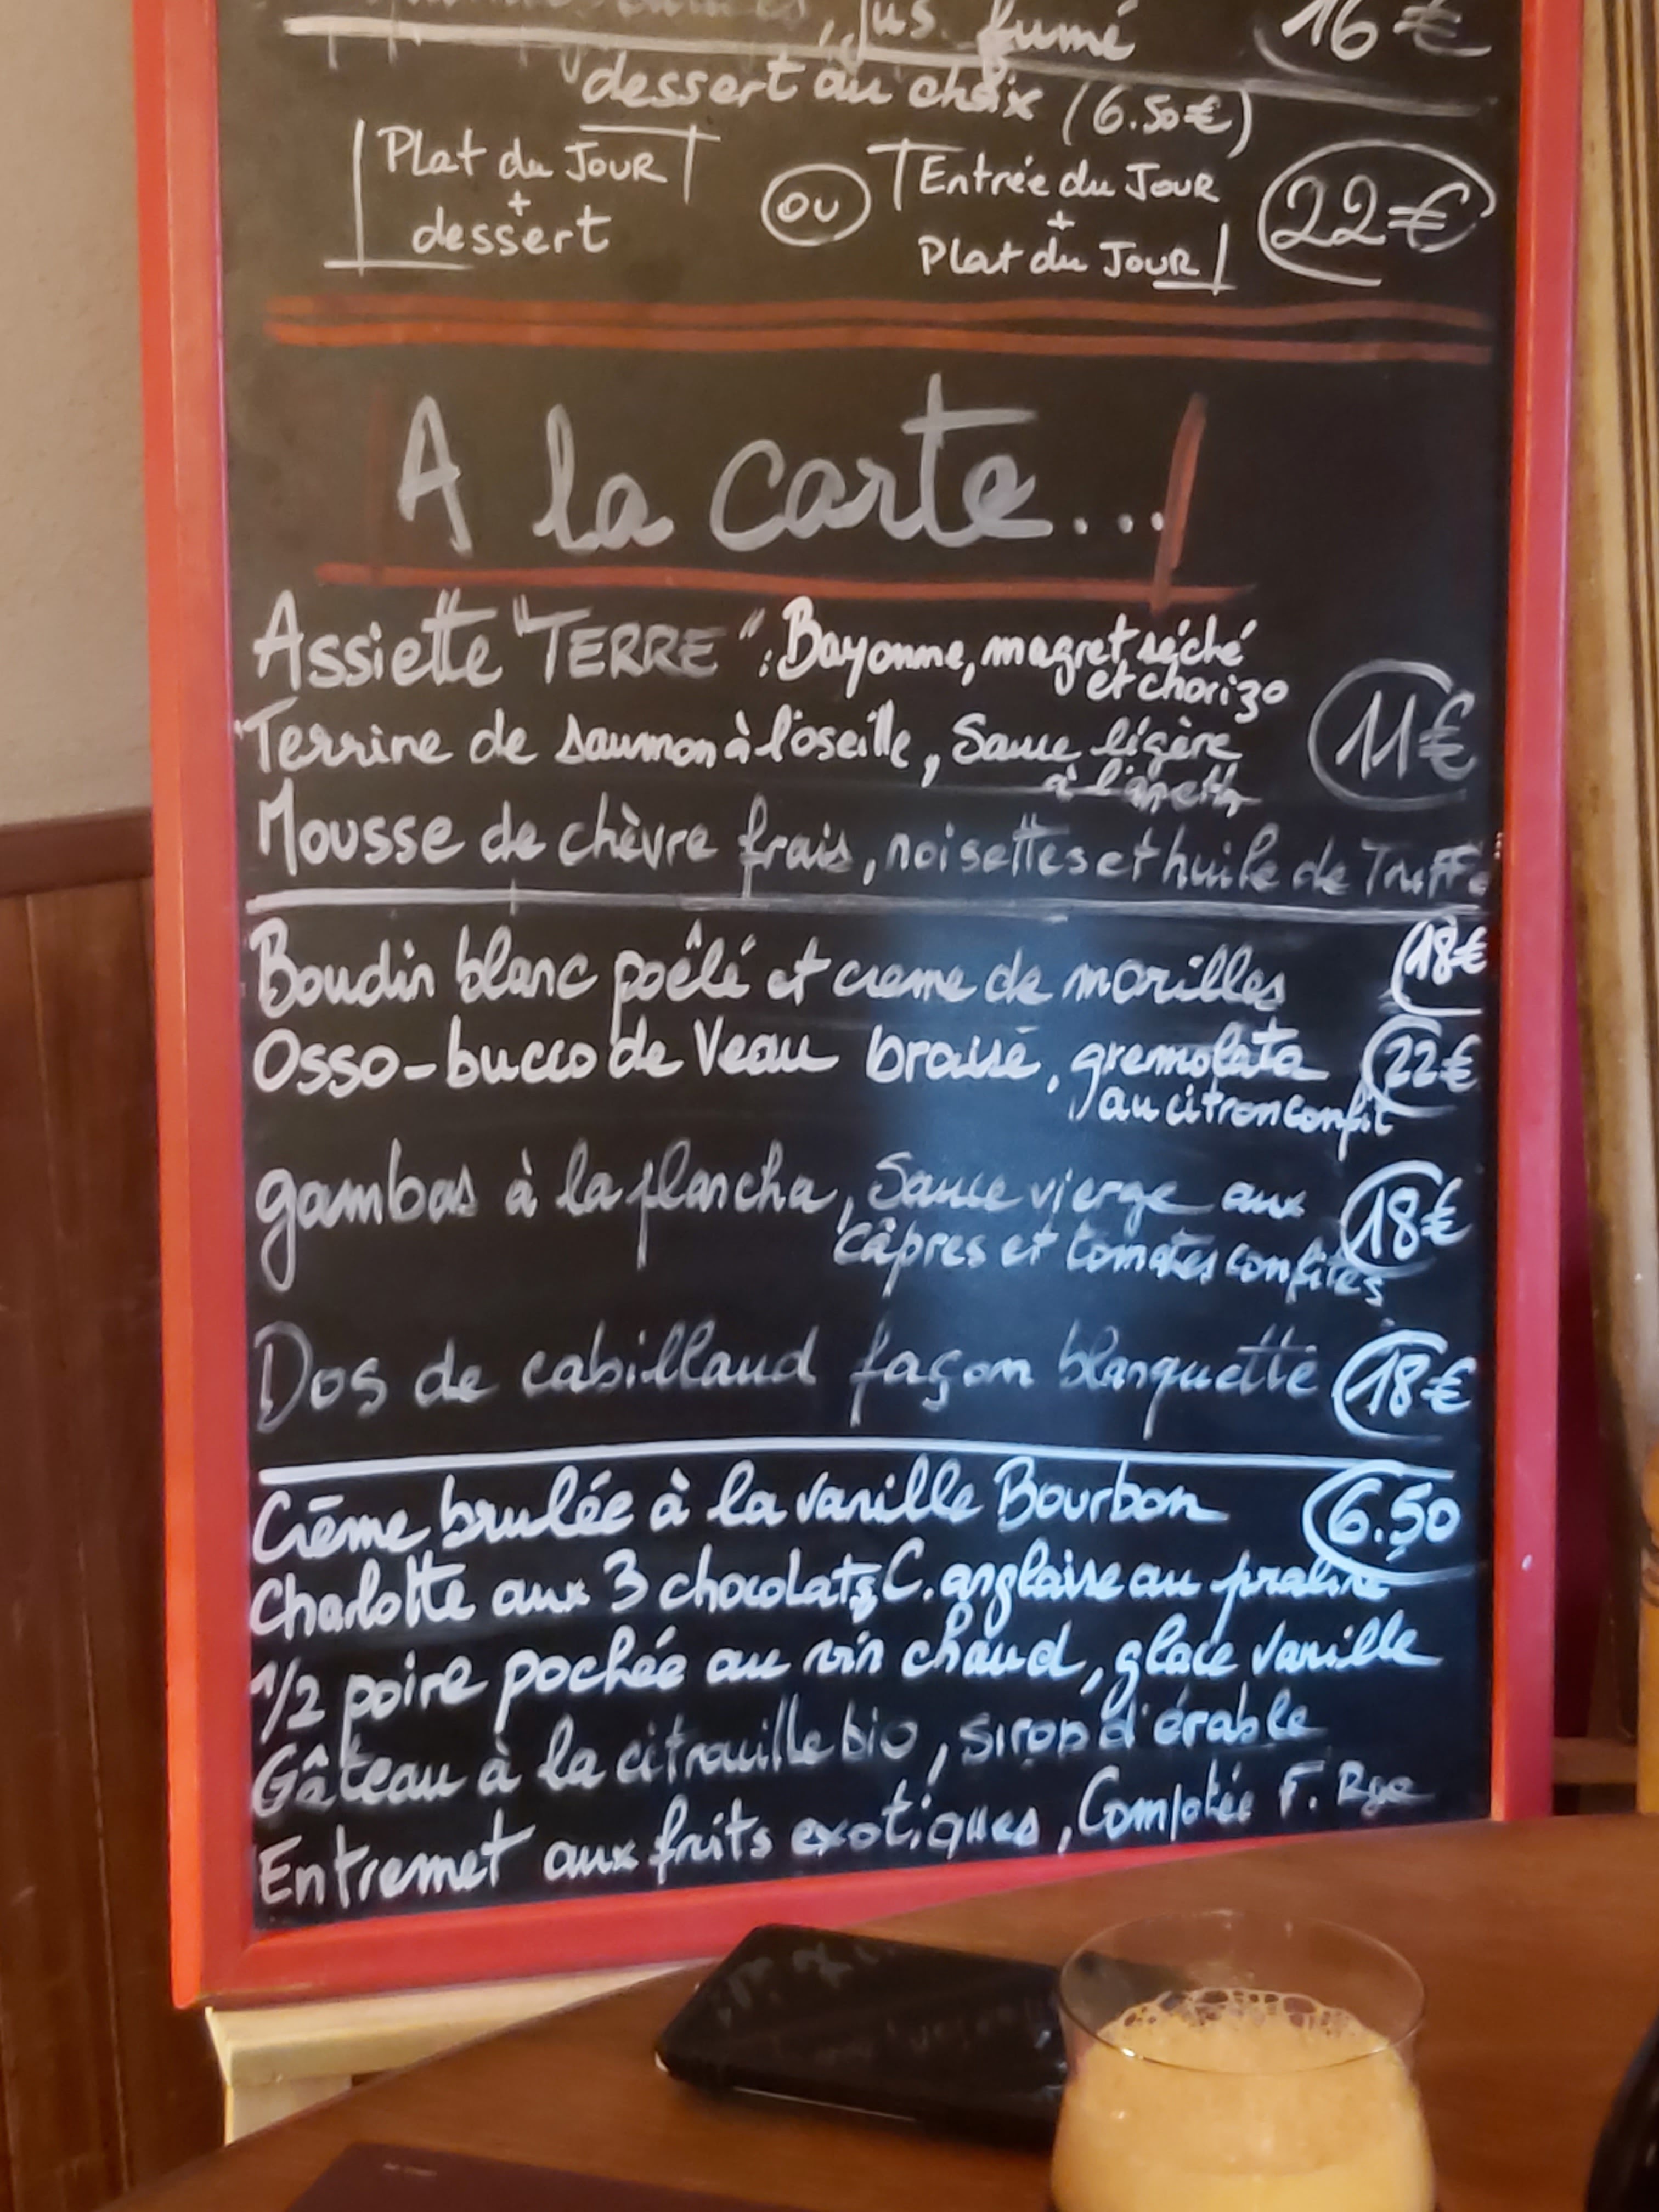 , jus fumé 16€
dessert au choix (6.50€)
Plat du JOUR
+
dessert
OU
Entrée du JOUR
+
Plat du JOUR
22€
A la carte...
Assiette "TERRE": Bayonne, magret séché
et chorizo
Terrine de saumon à l'oseille, Sauce légère
à l'aneth
11€
Mousse de chèvre frais, noisettes et huile de Truffe
Boudin blanc poêlé et creme de morilles 18€
Osso-bucco de Veau braisé, gremolata 22€
au citron confit
gambas à la plancha, Sauce vierge aux 18€
câpres et tomates confites
Dos de cabillaud façon blanquette 18€
Crème brulée à la vanille Bourbon 6.50
Charlotte aux 3 chocolats, C. anglaise au praliné
1/2 poire pochée au vin chaud, glace vanille
Gâteau à la citrouille bio, sirop d'érable
Entremet aux fruits exotiques, Compotée F. Rge